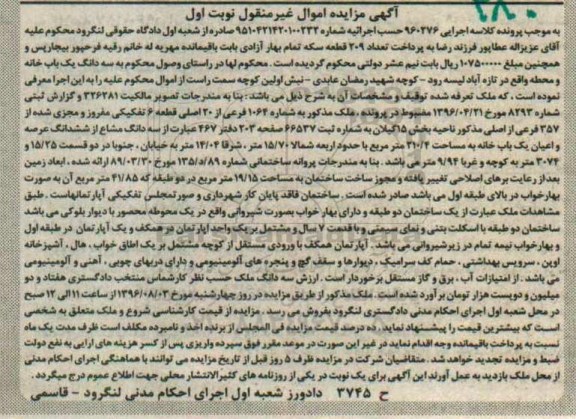 ۳۸۰
آگهی مزایده اموال غیرمنقول نوبت اول
به موجب پرونده کلاسه اجرایی ۹۶۰۳۷۶ حسب اجرائیه شماره ۹۵۱۰۴۲۱۴۲۰۱۰۰۲۳۲ صادره از شعبه اول دادگاه حقوقی لنگرود محکوم علیه
آقای عزیزاله عطاپور فرزند رضا به پرداخت تعداد ۲۰۹ قطعه سکه تمام بهار آزادی بابت باقیمانده مهریه له خانم رقیه فرحپور بیجارپس و
همچنین مبلغ ۱۰۷۵۰۰۰۰۰ ریال بابت نیم عشر دولتی محکوم گردیده است. محکوم لها در راستای وصول محکوم به سه دانگ یک باب خانه
و محطه واقع در تازه آباد لیسه رود - کوچه شهید رمضان عابدی - نبش اولین کوچه سمت راست از اموال محکوم علیه را به این اجرا معرفی
نموده است، که ملک تعرفه شده توقیف و مشخصات آن به شرح ذیل می باشد: بنا به مندرجات تصویر مالکیت ۳۳۶۲۸۱ و گزارش ثبتی
شماره ۸۲۹۳ مورخ ۱۳۹۶/۰۴/۳۱ مضبوط در پرونده، ملک مذکور به شماره ۱۰۶۴ فرعی از ۲۰ اصلی قطعه ۶ تفکیکی مفروز و مجزی شده از
۳۵۷ فرعی از اصلی مذکور ناحیه بخش ۱۵ گیلان به شماره ثبت ۶۶۵۳۷ صفحه ۲۰۳ دفتر ۴۶۷ عبارت از سه دانگ مشاع از ششدانگ عرصه
و اعیان یک باب خانه به مساحت ۲۱۰/۴ متر مربع با حدود اربعه شمالا ۱۵/۷۰ متر، شرقا ۱۴/۰۴ متر به خیابان، جنوبا در دو قسمت ۱۵/۲۵ و
۳۰۷۴ متر به کوچه و غربا ۹/۹۴ متر می باشد. بنا به مندرجات پروانه ساختمانی شماره ۱۳۵/د/۸۹ مورخ ۸۹/۰۳/۳۰ ارائه شده، ابعاد زمین
بعد از رعایت برهای اصلاحی تغییر یافته و مجوز ساخت ساختمان به مساحت ۱۹/۱۵ متر مربع در دو طبقه که ۴۱/۸۵ متر مربع آن به صورت
بهارخواب در بالای طبقه اول می باشد صادر شده است. ساختمان فاقد پایان کار شهرداری و صورتمجلس تفکیکی آپارتمانهاست. طبق
مشاهدات ملک عبارت از یک ساختمان دو طبقه و دارای بهار خواب بصورت شیروانی واقع در یک محوطه محصور با دیوار بلوکی می باشد
ساختمان دو طبقه با اسکلت بتنی و نمای سیمتی و با قدمت ۷ سال و مشتمل بر یک واحد آپارتمان در همکف و یک آپارتمان در طبقه اول
و بهارخواب نیمه تمام در زیرشیروانی می باشد. آپارتمان همکف با ورودی مستقل از کوچه مشتمل بر یک اطاق خواب، هال، آشپزخانه
اوپن، سرویس بهداشتی، حمام کف سرامیک، دیوارها و سقف گچ و پنجره های آلومینیومی و دارای دربهای چوبی، آهنی و آلومینیومی
می باشد. از امتیازات آب، برق و گاز مستقل برخوردار است. ارزش سه دانگ ملک حسب نظر کارشناس منتخب دادگستری هفتاد و دو
میلیون و دویست هزار تومان برآورد شده است. ملک مذکور از طریق مزایده در روز چهارشنبه مورخ ۱۳۹۶/۰۸/۰۳ از ساعت ۱۱ الی ۱۲ صبح
در محل شعبه اول اجرای احکام مدنی دادگستری لنگرود بفروش می رسد. مزایده از قیمت کارشناسی شروع و ملک متعلق به شخصی
است که بیشترین قیمت را پیشنهاد نماید. ده درصد قیمت مزایده فی المجلس از برنده اخذ و نامبرده مکلف است ظرف مدت یک ماه
نسبت به پرداخت باقیمانده وجه اقدام نماید در غیر این صورت در موعد مقرر فوق سپرده واریزی پس از کسر هزینه های ارایی به نفع دولت
ضبط و مزایده تجدید خواهد شد. متقاضیان شرکت در مزایده ظرف ۵ روز قبل از تاریخ مزایده می توانند با هماهنگی اجرای احکام مدنی
از محل ملک بازدید به عمل آورند این آگهی برای یک نوبت در یکی از روزنامه های کثیرالانتشار محلی جهت اطلاع عموم درج میگردد.
ح ۳۷۴۵ دادورز شعبه اول اجرای احکام مدنی لنگرود - قاسمی